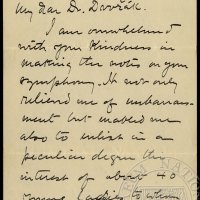 My dear Dr. Dvořák.
I am overwhelmed
with your kindness in
making the notes on your
symphony. It not only
relieved me of embarras-
ment but enabled me
also to enlist in a
peculiar degree the
interest of about 40
young ladies to whom